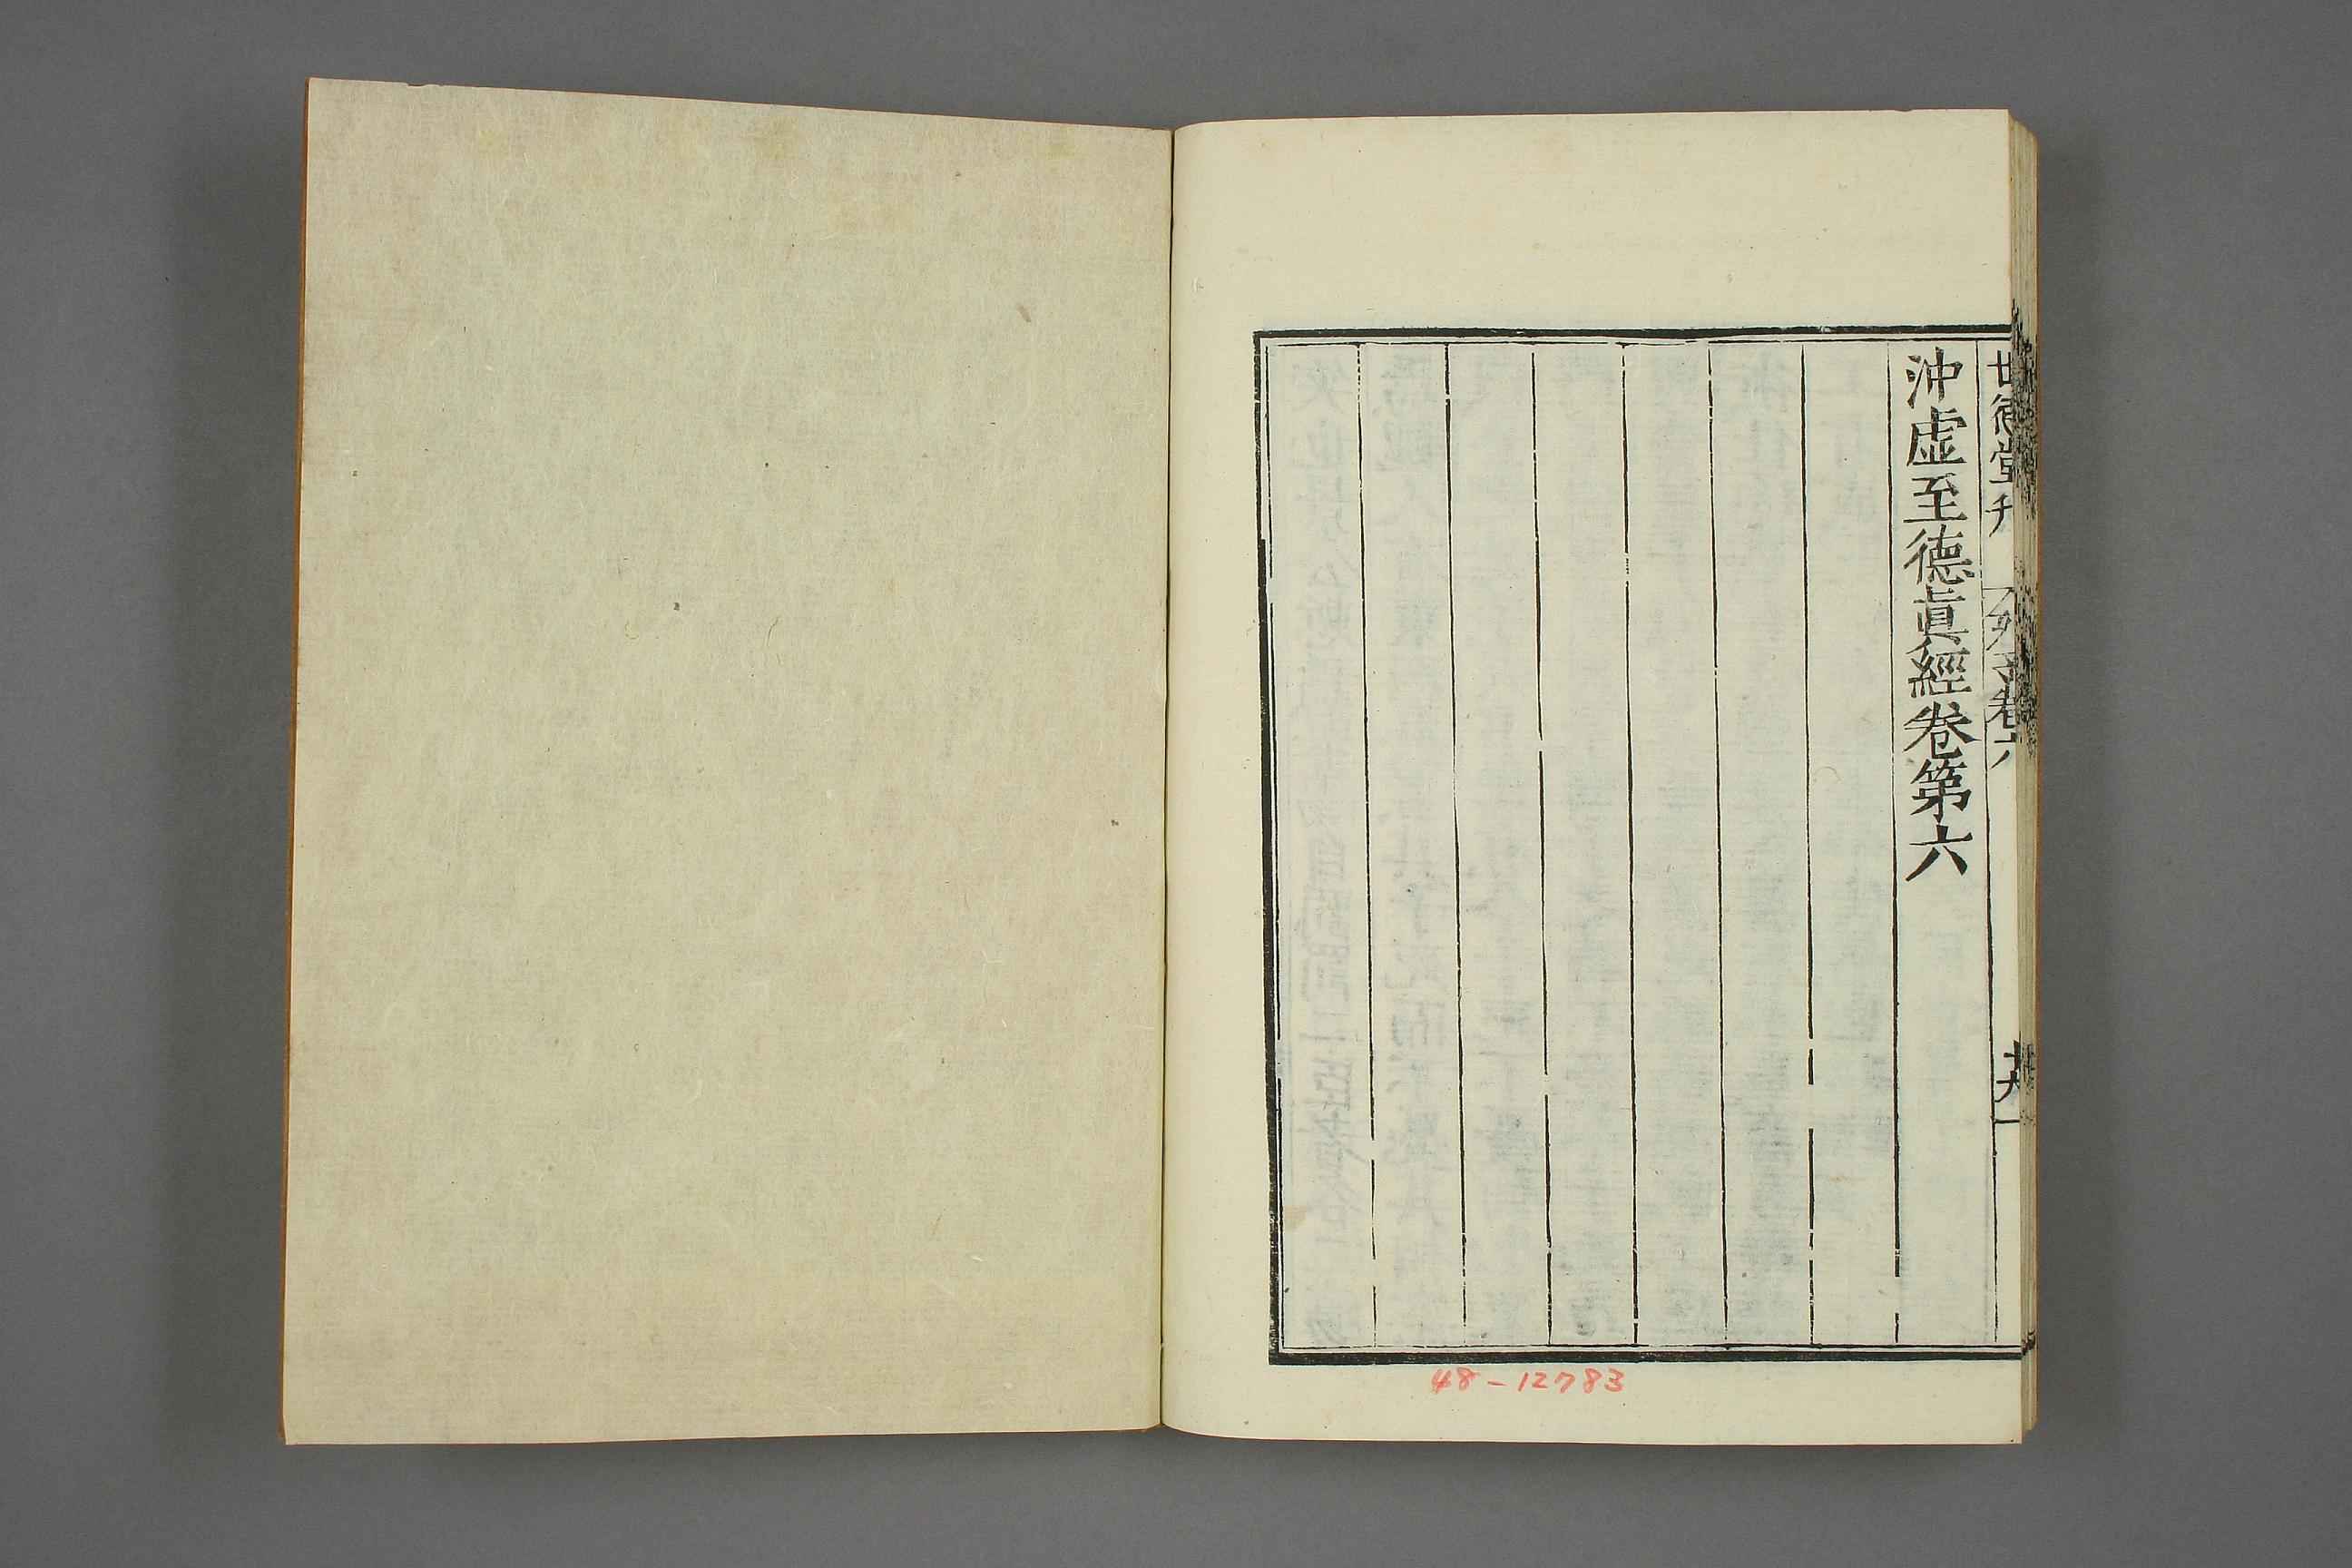 世德堂刊 列子卷六 十九
沖虛至德眞經卷第六
48-12783